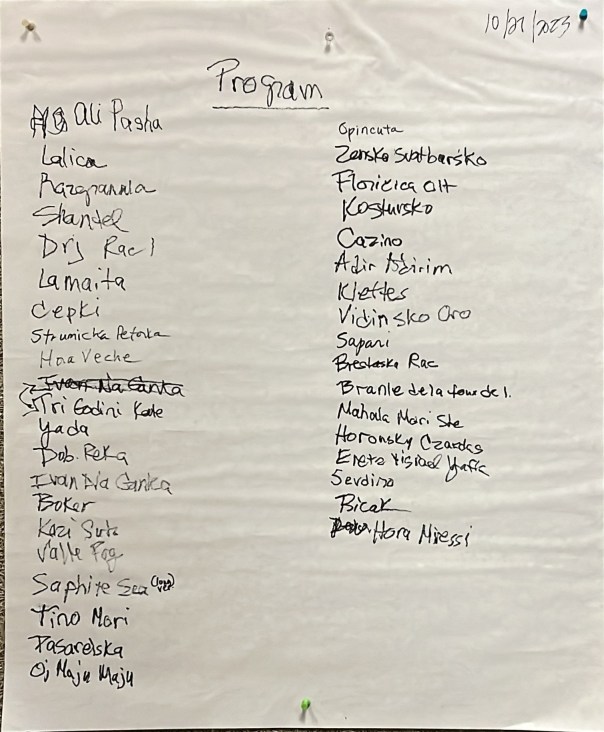 10/21/2023
Program
Ali Pasha
Lalica
Razgranula
Shantel
Drj Rac 1
Lamaita
Cepki
Strumicka Petorka
Hoa Veche
Ivan Na Ganka
Tri Godini Kate
Yada
Dob. Reka
Ivan Na Ganka
Boker
Kazi Suta
Valle Pog
Saphire Sea (long ver)
Tino Mori
Pasarelska
Oj Maju Maju
Opincuta
Zensko Svatbarsko
Floricica Olt
Kostursko
Cazino
Adir Adirim
Kletter
Vidinsko Oro
Sapari
Rac
Branle de la four de l.
Mahala Mori Ste
Horonsky Czardas
Eretz Yisrael Yafa
Sevdino
Bicak
Hora Miresii